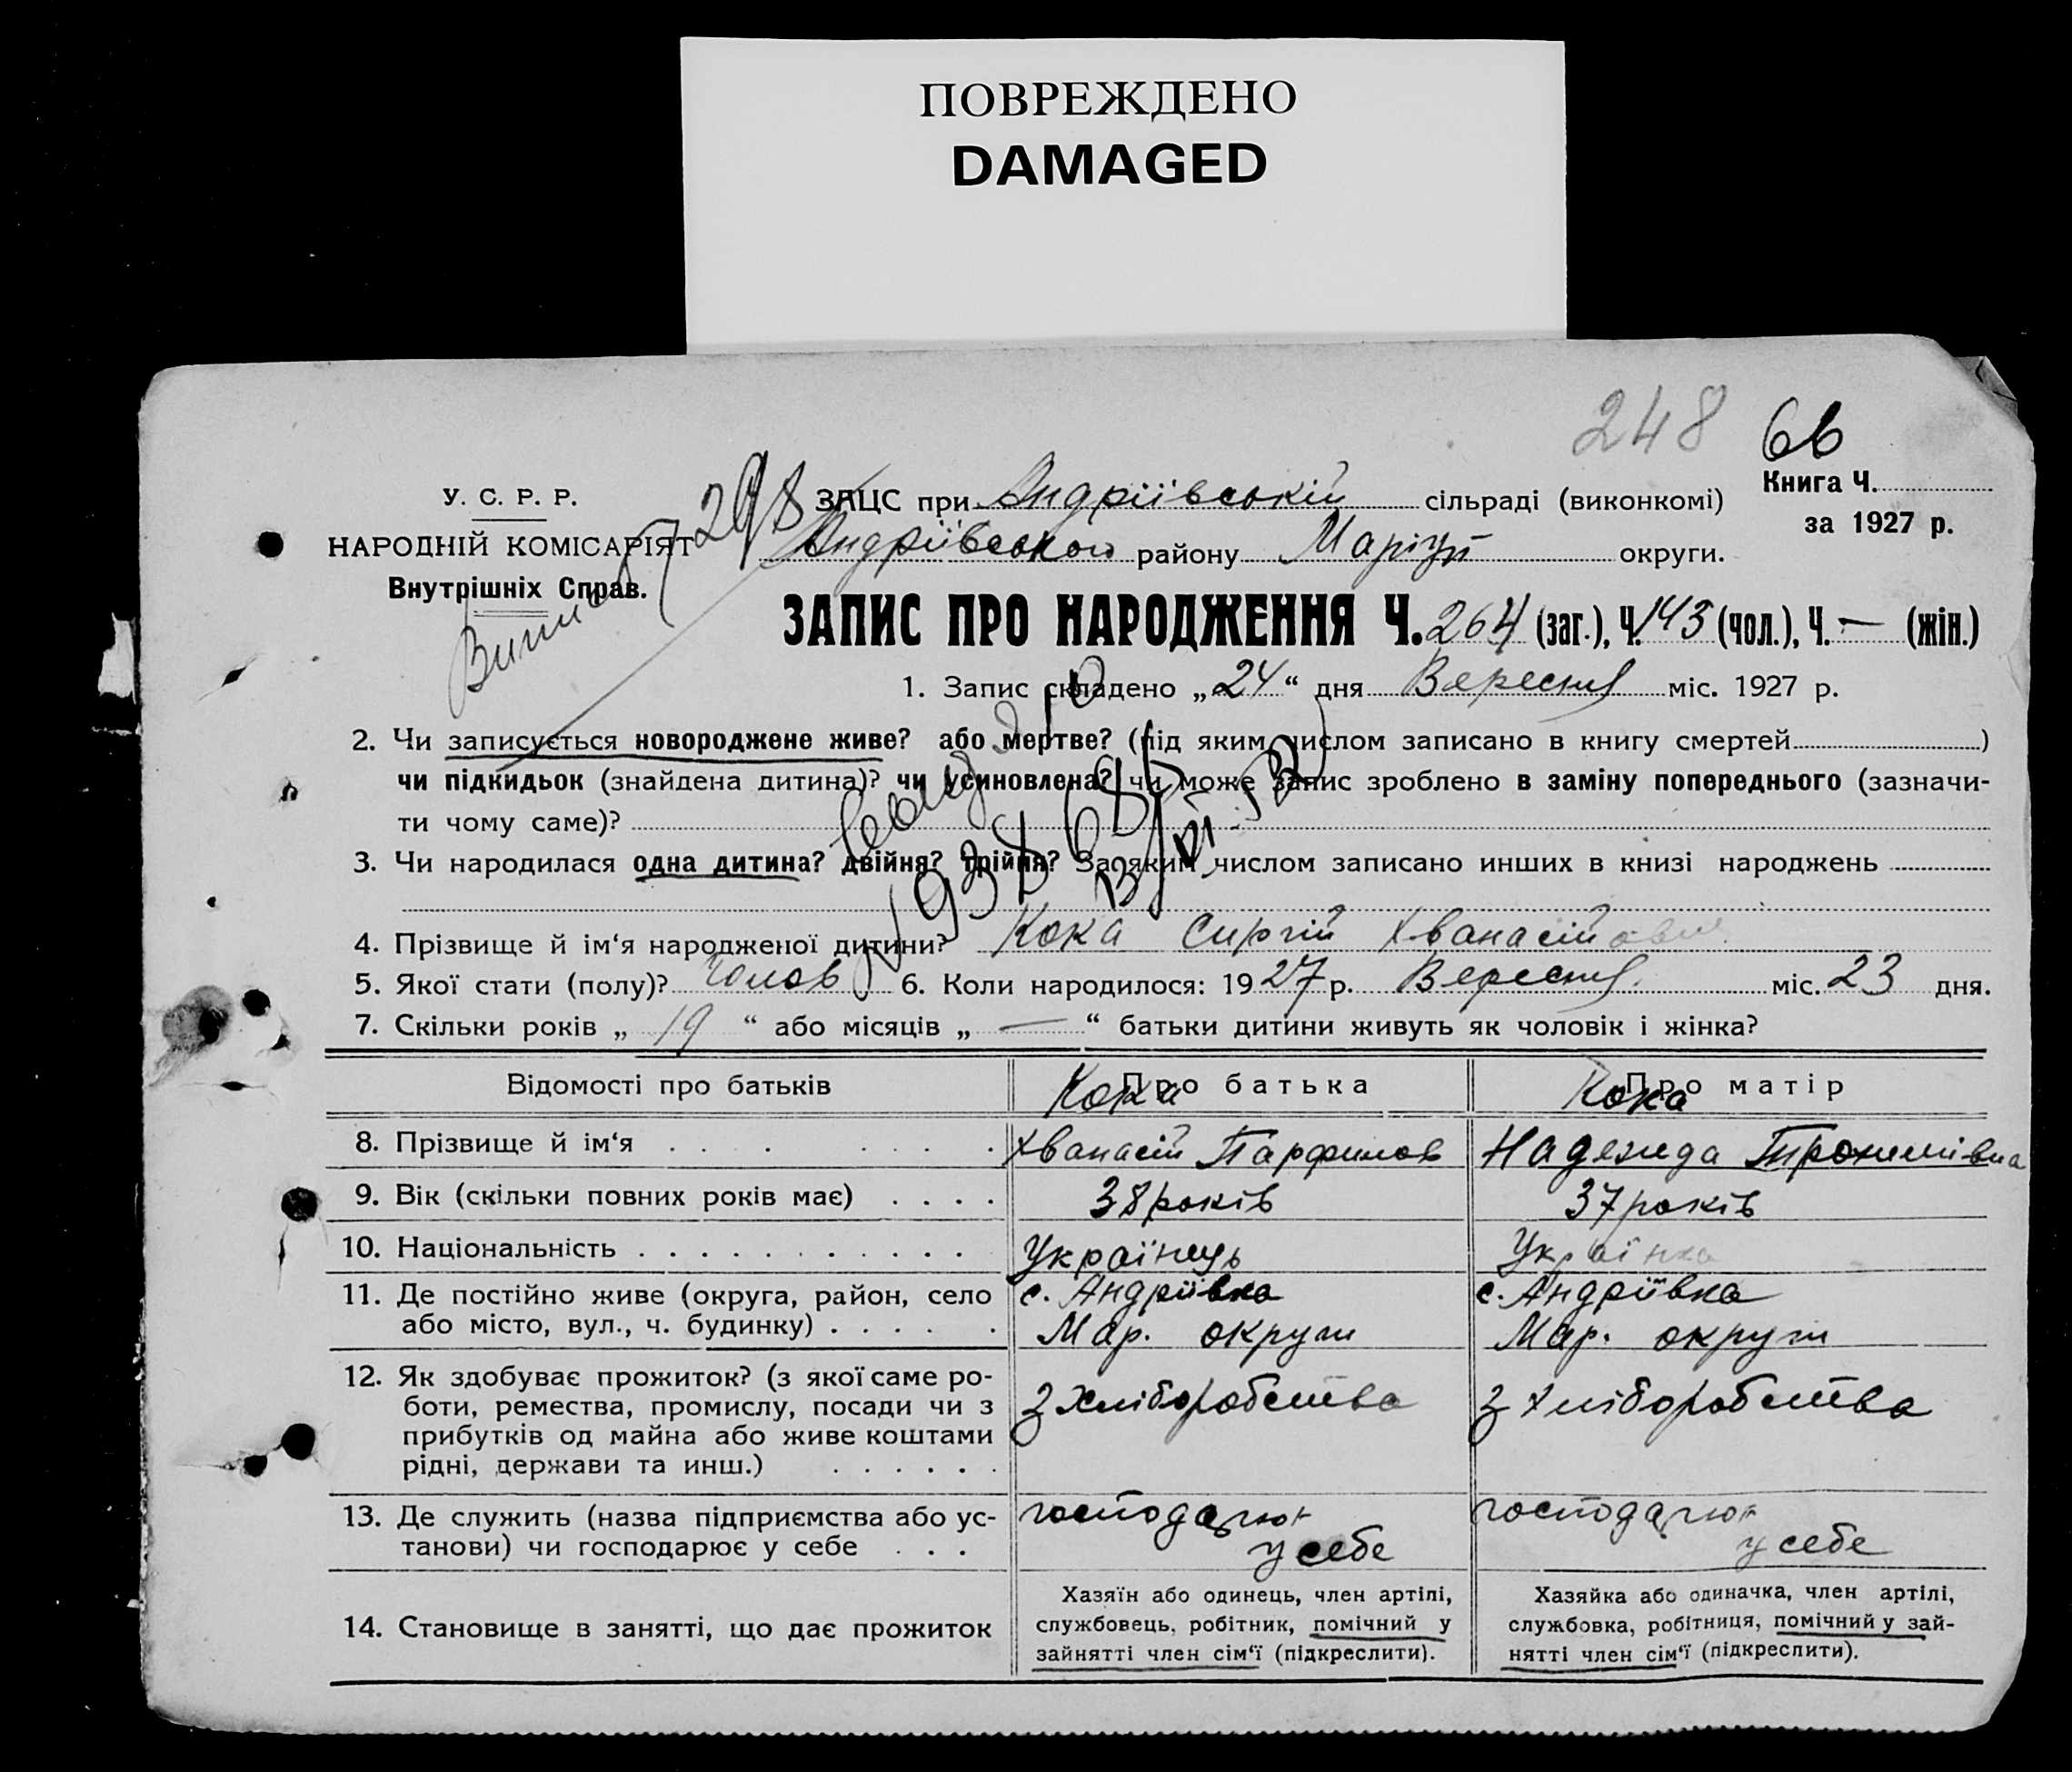 ПОВРЕЖДЕНО
DAMAGED
248 66
У. С. Р. Р.
НАРОДНІЙ КОМІСАРІЯТ
Внутрішніх Справ.
298
ЗАЦС при Андріївській сільраді (виконкомі)
Книга Ч.
за 1927 р.
Андріївського району Маріуп округи.
ЗАПИС ПРО НАРОДЖЕННЯ Ч. 264 (заг.), Ч. 143 (чол.), Ч. — (жін.)
1. Запис складено „ 24 “ дня Вересня міс. 1927 р.
2. Чи записується новороджене живе? або мертве? (під яким числом записано в книгу смертей )
чи підкидьок (знайдена дитина)? чи усиновлена? чи може запис зроблено в заміну попереднього (зазначи-
ти чому саме)?
3. Чи народилася одна дитина? двійня? трійня? За яким числом записано инших в книзі народжень
4. Прізвище й ім‘я народженої дитини? Кока Сиргій Хванасійович
5. Якої стати (полу)? Чолов 6. Коли народилося: 1927 р. Вересня міс. 23 дня.
7. Скільки років „ 19 “ або місяців „ — “ батьки дитини живуть як чоловік і жінка?
Відомості про батьків Про батька Про матір
Кока Кока
8. Прізвище й ім‘я Хванасій Парфилов Надежда Трохимівна
9. Вік (скільки повних років має) 38 років 37 років
10. Національність Українець Українка
11. Де постійно живе (округа, район, село с. Андріївка с. Андріївка
або місто, вул., ч. будинку) Мар. округи Мар. округи
12. Як здобуває прожиток? (з якої саме ро-
боти, ремества, промислу, посади чи з З хліборобства З хліборобства
прибутків од майна або живе коштами
рідні, держави та инш.)
13. Де служить (назва підприємства або ус- господарює господарює
танови) чи господарює у себе у себе у себе
Хазяїн або одинець, член артілі, Хазяйка або одиначка, член артілі,
14. Становище в занятті, що дає прожиток службовець, робітник, помічний у службовка, робітниця, помічний у зай-
зайнятті член сім‘ї (підкреслити). нятті член сім‘ї (підкреслити).